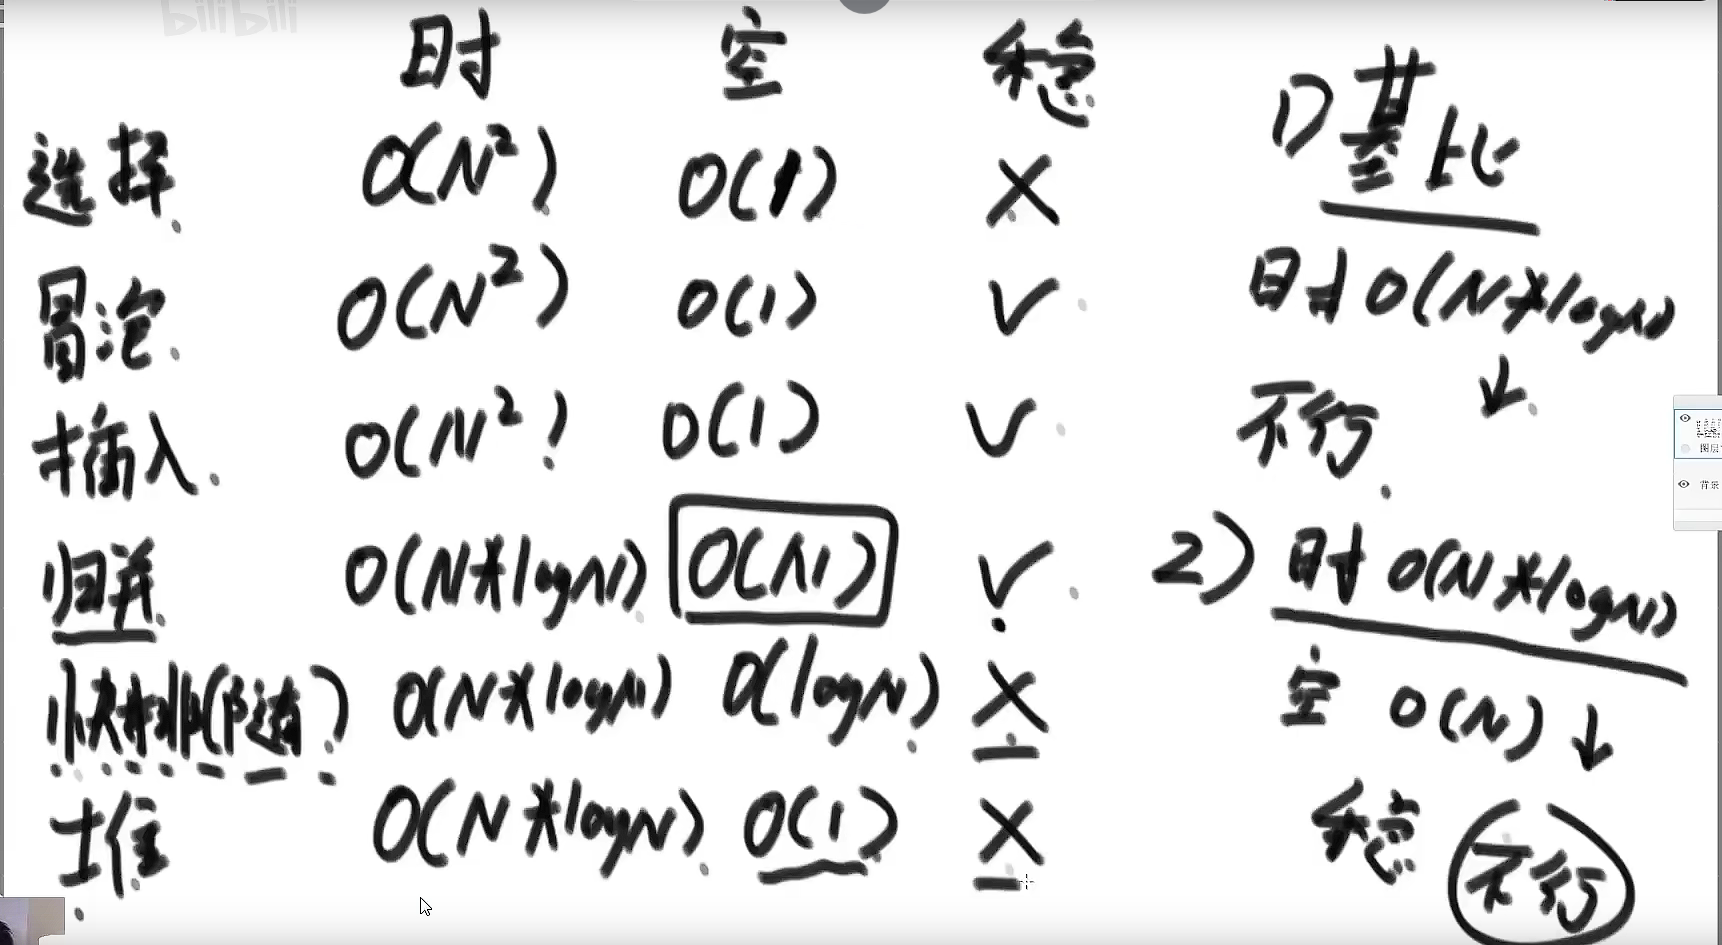 bilibili
时 空 稳
选择 O(N²) O(1) X
冒泡 O(N²) O(1) √
插入 O(N²) O(1) √
归并 O(N*logN) O(N) √
快排(随) O(N*logN) O(logN) X
堆 O(N*logN) O(1) X
1) 基比
时 O(N*logN)
↓
不行
2) 时 O(N*logN)
空 O(N) ↓
稳 不行
图层
背景